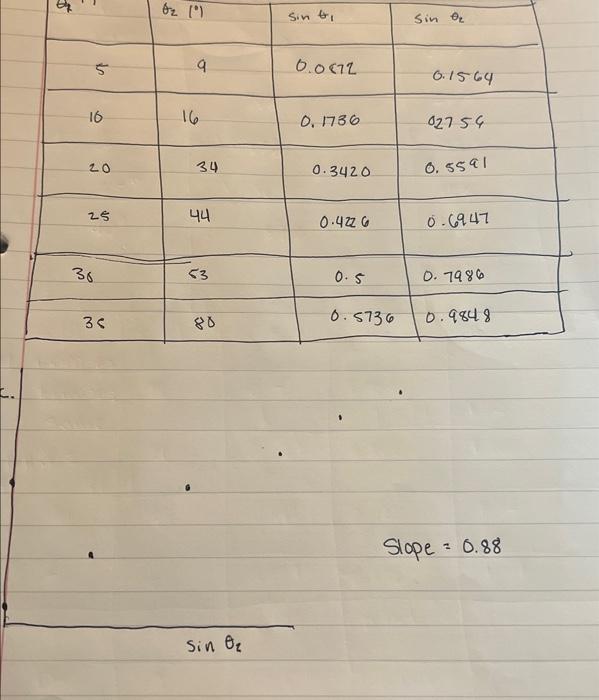 θ₂ (°) sin θ₁ sin θ₂
5 9 0.0872 0.1564
10 16 0.1736 02756
20 34 0.3420 0.5591
25 44 0.4226 0.6947
30 53 0.5 0.7986
35 80 0.5736 0.9848
c.
Slope = 0.88
sin θ₂